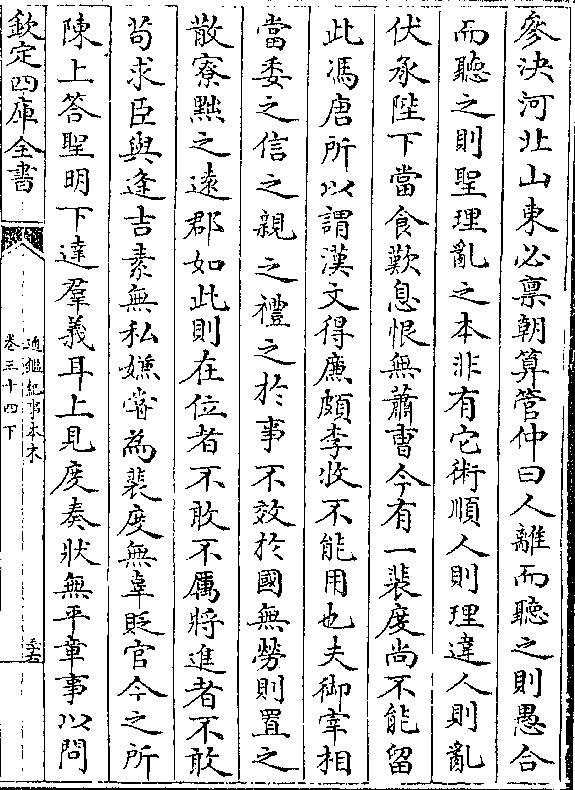 參決河北山東必禀朝算管仲曰人離而聽之則愚合
而聽之則聖理亂之本非有它術順人則理違人則亂
伏承陛下當食歎息恨無蕭曹今有一裴度尚不能留
此馮唐所以謂漢文得廉頗李牧不能用也夫御宰相
當委之信之親之禮之於事不效於國無勞則置之
散寮黜之遠郡如此則在位者不敢不厲將進者不敢
苟求臣與逢吉素無私嫌嘗為裴度無辜貶官今之所
陳上答聖明下達羣義耳上見度奏狀無平章事以問
欽定四庫全書
通鑑紀事本末
卷三十四下